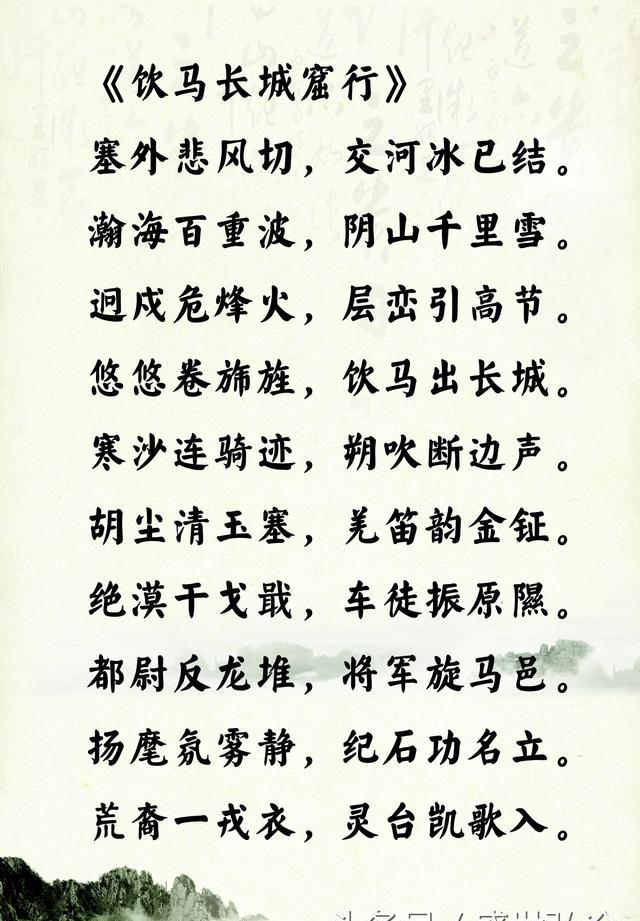 《饮马长城窟行》
塞外悲风切，交河冰已结。
瀚海百重波，阴山千里雪。
迥戍危烽火，层峦引高节。
悠悠卷旆旌，饮马出长城。
寒沙连骑迹，朔吹断边声。
胡尘清玉塞，羌笛韵金钲。
绝漠干戈戢，车徒振原隰。
都尉反龙堆，将军旋马邑。
扬麾氛雾静，纪石功名立。
荒裔一戎衣，灵台凯歌入。